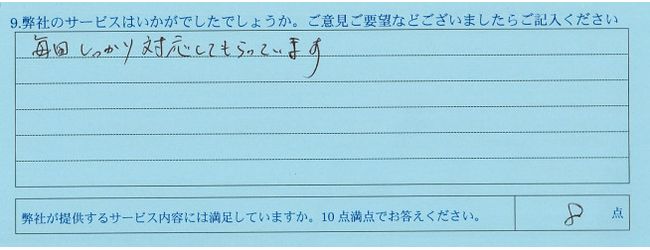 9.弊社のサービスはいかがでしたでしょうか。ご意見ご要望などございましたらご記入ください
毎回しっかり対応してもらっています
弊社が提供するサービス内容には満足していますか。10点満点でお答えください。
8 点